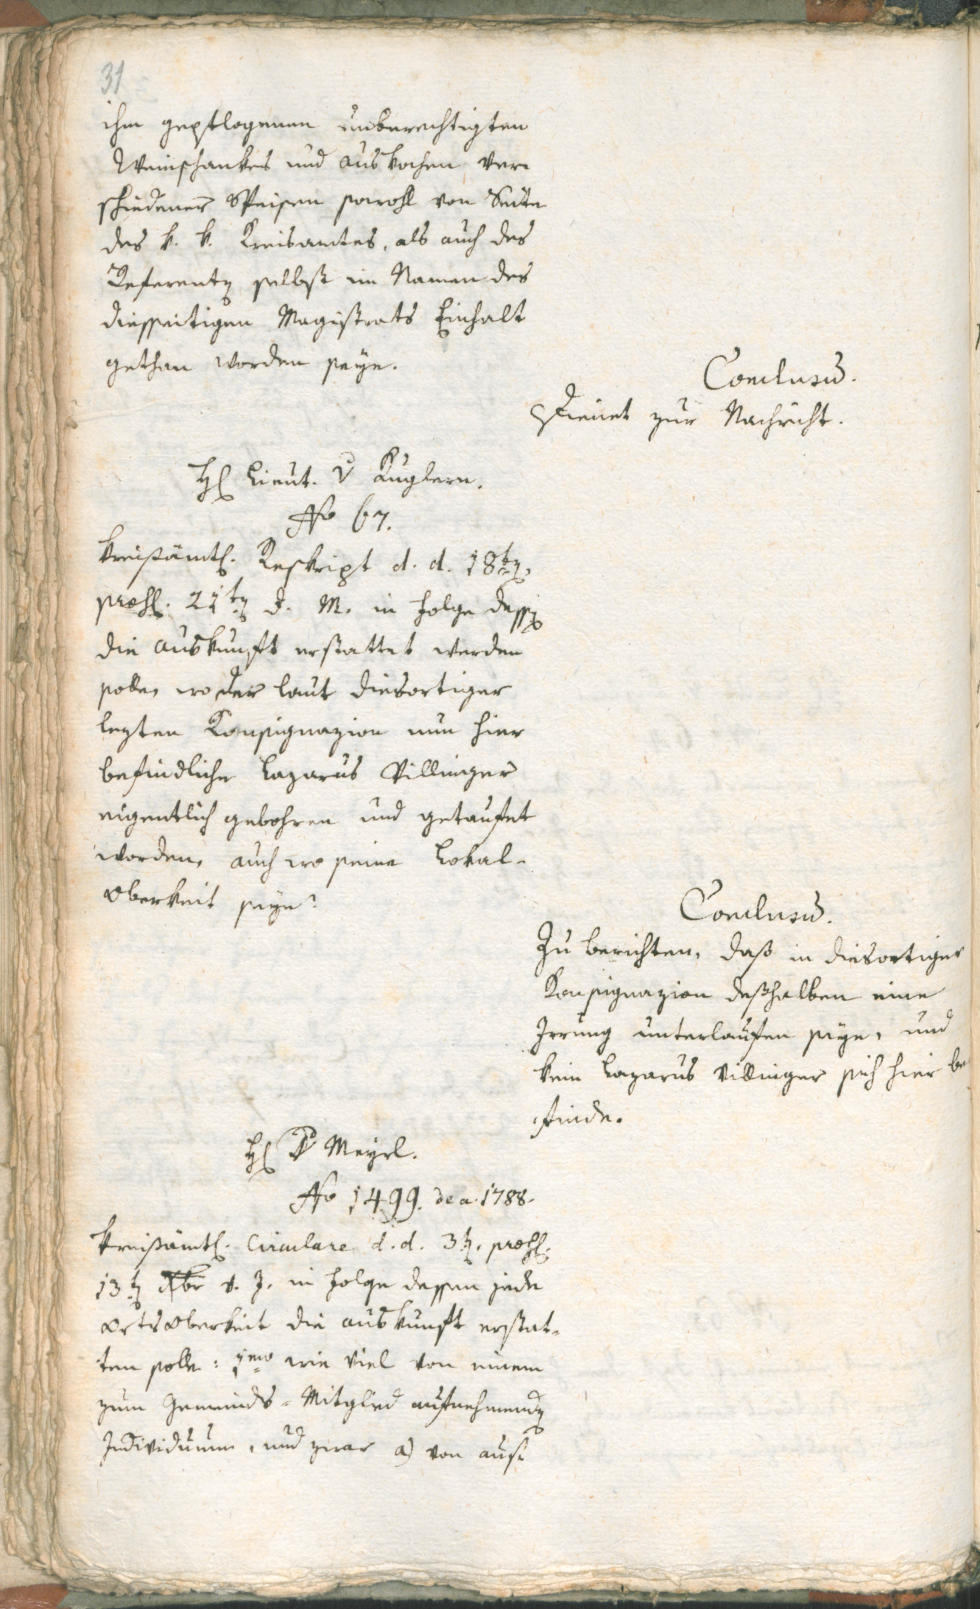 31
ihm gepflogenen unberechtigten
Weinschankes und auskochen ver-
schiedener Speisen sowohl von Seite
des k. k. Kreisamtes, als auch des
Referenten selbst im Namen des
diesseitigen Magistrats Einhalt
gethan worden seye.
Conclusum.
Dienet zur Nachricht.
H. Lieut. v Kuglern.
No 67.
Kreisämtl. Reskript d. d. 18ten
praes. 21ten d. M. in Folge dessen
die Auskunft erstattet werden
solle, wo der laut diesortiger
lezten Konsignazion nun hier
befindliche Lazarus Villinger
eigentlich gebohren und getaufet
worden, auch wo seine Lokal-
Oberkeit seye?
Conclusum.
Zu berichten, daß in diesortiger
Konsignazion deßhalben eine
Irrung unterlaufen seye, und
kein Lazarus Villinger sich hier be
finde.
H. Meyrl.
No 1499. de a. 1788.
Kreisämtl. Circulare d. d. 3t. praes.
13t Xbr v. J. in Folge dessen jede
Ortsoberkeit die Auskunft erstat-
ten solle: 1mo wie viel von einem
zum Gemeinds-Mitglied aufnehmenden
Individuum, und zwar a) von